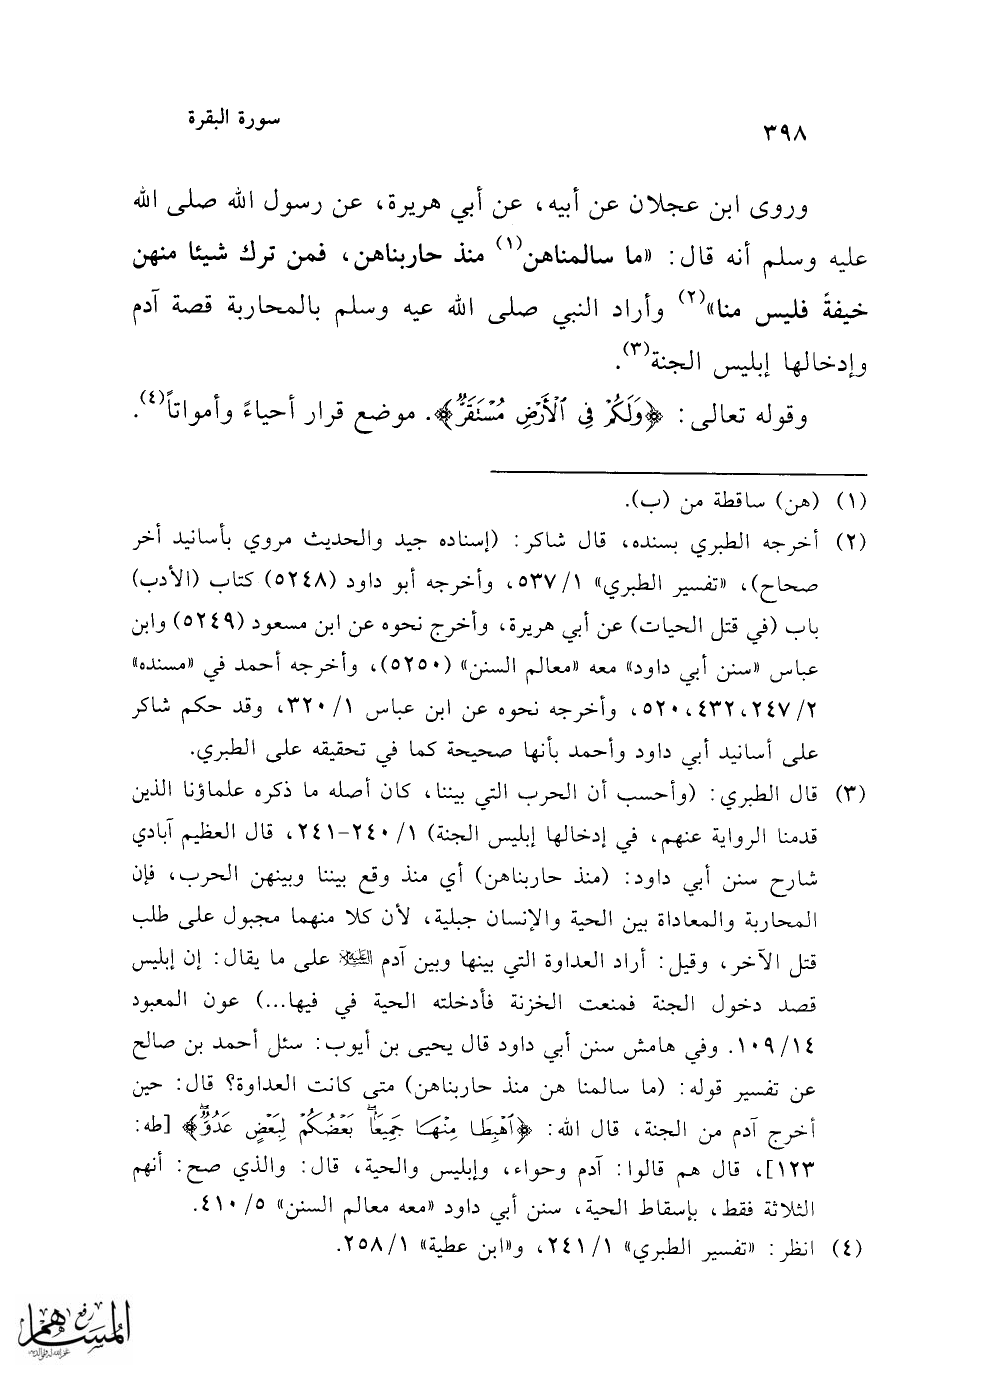 سورة البقرة
٣٩٨
وروى ابن عجلان عن أبيه، عن أبي هريرة، عن رسول الله صلى الله
عليه وسلم أنه قال: «ما سالمناهن(١) منذ حاربناهن، فمن ترك شيئا منهن
خيفةً فليس منا»(٢) وأراد النبي صلى الله عيه وسلم بالمحاربة قصة آدم
وإدخالها إبليس الجنة(٣).
وقوله تعالى: ﴿وَلَكُمْ فِي الْأَرْضِ مُسْتَقَرٌّ﴾. موضع قرار أحياءً وأمواتاً(٤).
(١) (هن) ساقطة من (ب).
(٢) أخرجه الطبري بسنده، قال شاكر: (إسناده جيد والحديث مروي بأسانيد أخر
صحاح)، «تفسير الطبري» ١/ ٥٣٧، وأخرجه أبو داود (٥٢٤٨) كتاب (الأدب)
باب (في قتل الحيات) عن أبي هريرة، وأخرج نحوه عن ابن مسعود (٥٢٤٩) وابن
عباس «سنن أبي داود» معه «معالم السنن» (٥٢٥٠)، وأخرجه أحمد في «مسنده»
٢/ ٢٤٧، ٤٣٢، ٥٢٠، وأخرجه نحوه عن ابن عباس ١/ ٣٢٠، وقد حكم شاكر
على أسانيد أبي داود وأحمد بأنها صحيحة كما في تحقيقه على الطبري.
(٣) قال الطبري: (وأحسب أن الحرب التي بيننا، كان أصله ما ذكره علماؤنا الذين
قدمنا الرواية عنهم، في إدخالها إبليس الجنة) ١/ ٢٤٠-٢٤١، قال العظيم آبادي
شارح سنن أبي داود: (منذ حاربناهن) أي منذ وقع بيننا وبينهن الحرب، فإن
المحاربة والمعاداة بين الحية والإنسان جبلية، لأن كلا منهما مجبول على طلب
قتل الآخر، وقيل: أراد العداوة التي بينها وبين آدم عليه السلام على ما يقال: إن إبليس
قصد دخول الجنة فمنعت الخزنة فأدخلته الحية في فيها...) عون المعبود
١٤/ ١٠٩. وفي هامش سنن أبي داود قال يحيى بن أيوب: سئل أحمد بن صالح
عن تفسير قوله: (ما سالمنا هن منذ حاربناهن) متى كانت العداوة؟ قال: حين
أخرج آدم من الجنة، قال الله: ﴿اهْبِطَا مِنْهَا جَمِيعًا بَعْضُكُمْ لِبَعْضٍ عَدُوٌّ﴾ [طه:
١٢٣]، قال هم قالوا: آدم وحواء، وإبليس والحية، قال: والذي صح: أنهم
الثلاثة فقط، بإسقاط الحية، سنن أبي داود «معه معالم السنن» ٥/ ٤١٠.
(٤) انظر: «تفسير الطبري» ١/ ٢٤١، و«ابن عطية» ١/ ٢٥٨.